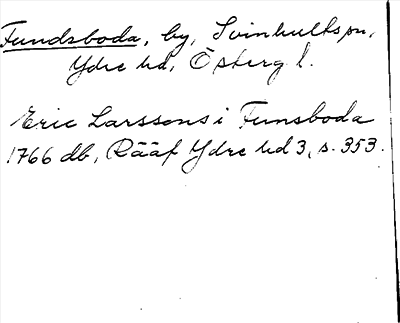 Fundsboda, by, Svinhults sn,
Ydre hd, Österg l.
Eric Larssons i Funsboda
1766 db, Rääf Ydre hd 3, s. 353.